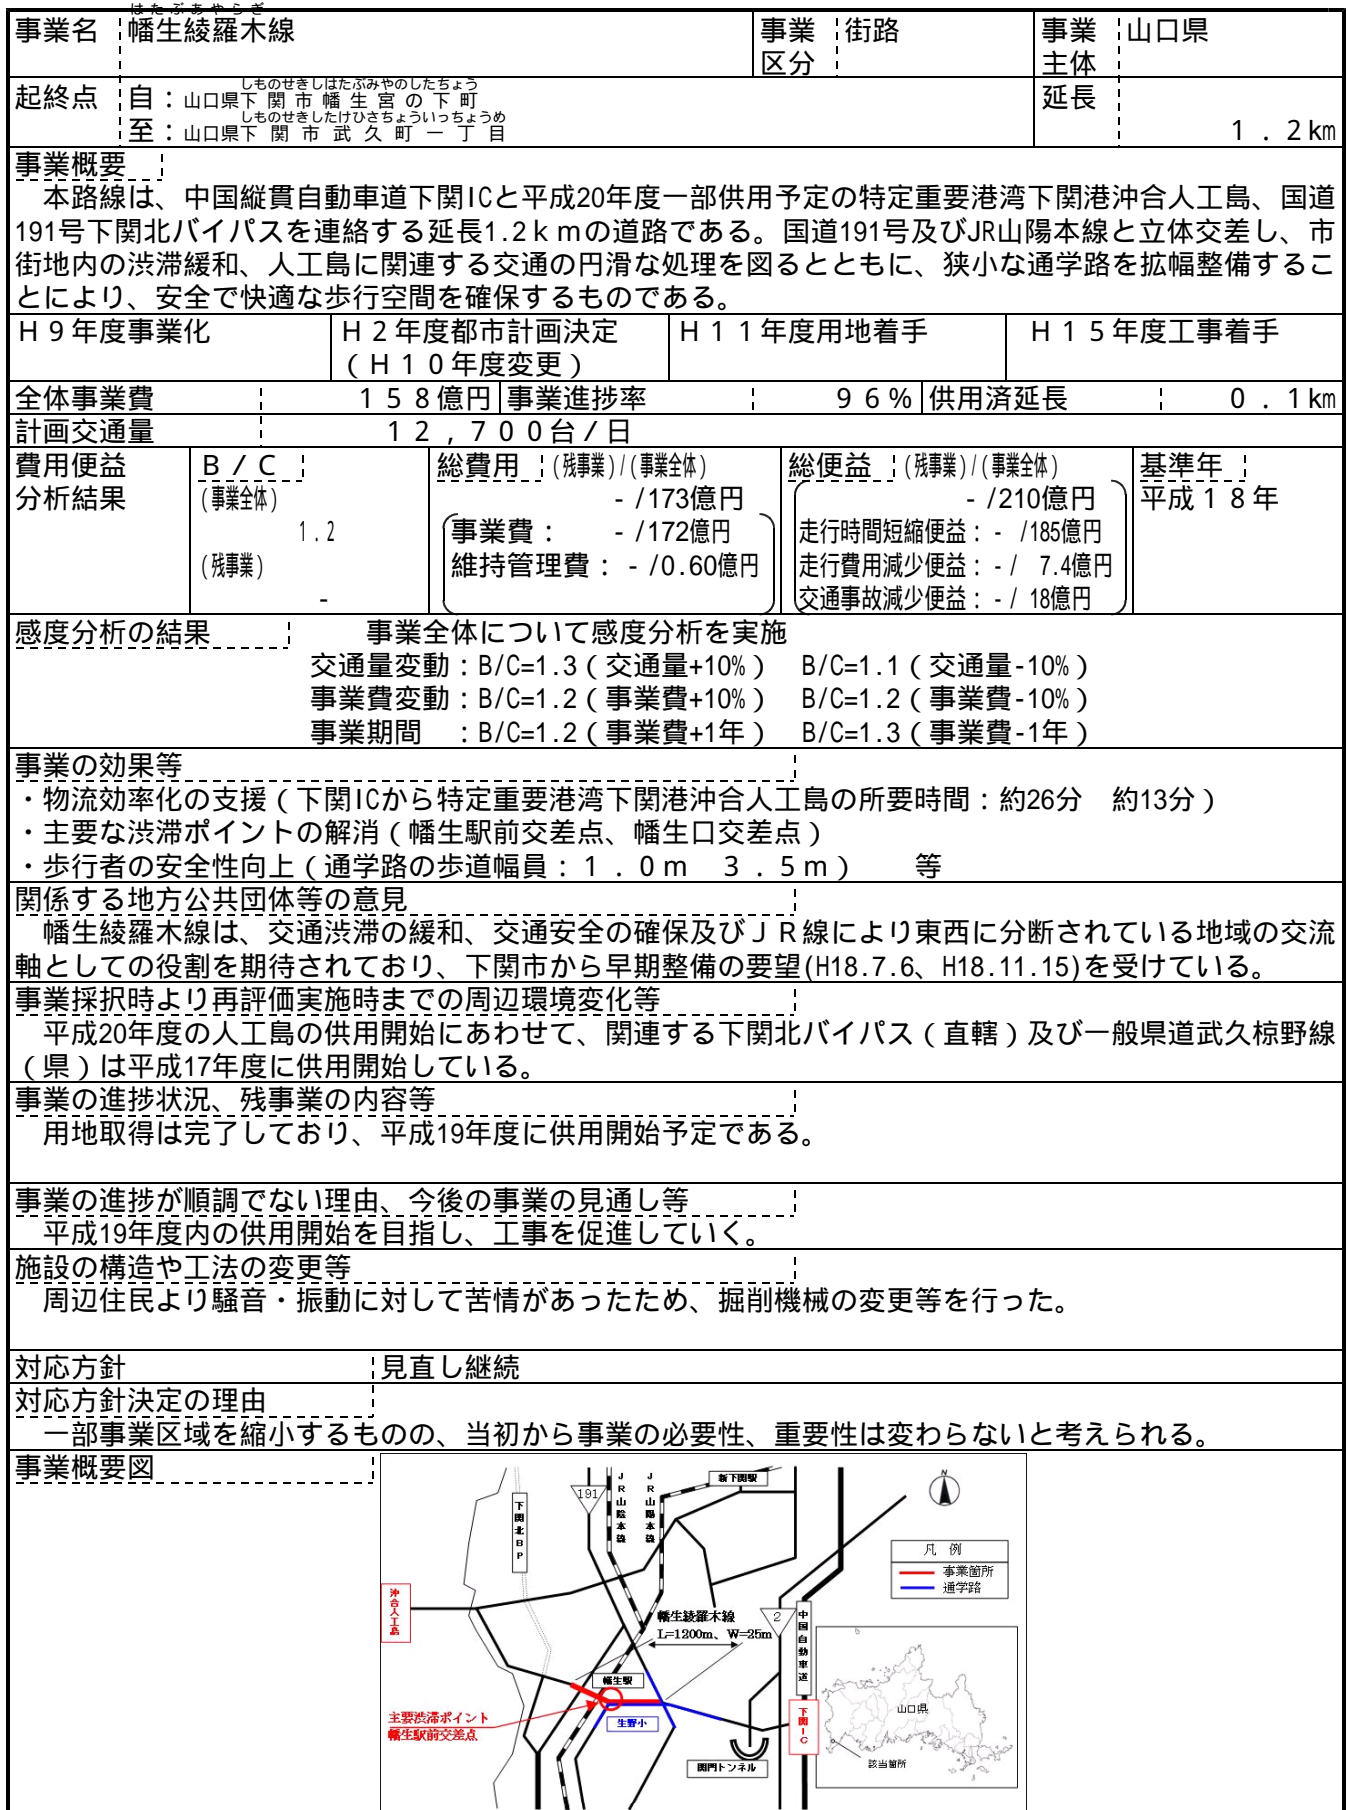 はたぶあやらぎ
事業名 幡生綾羅木線 事業 街路 事業 山口県
区分 主体
しものせきしはたぶみやのしたちょう
起終点 自：山口県下関市幡生宮の下町 延長
しものせきしたけひさちょういっちょうめ
至：山口県下関市武久町一丁目 １．２km
事業概要
本路線は、中国縦貫自動車道下関ICと平成20年度一部供用予定の特定重要港湾下関港沖合人工島、国道
191号下関北バイパスを連絡する延長1.2ｋｍの道路である。国道191号及びJR山陽本線と立体交差し、市
街地内の渋滞緩和、人工島に関連する交通の円滑な処理を図るとともに、狭小な通学路を拡幅整備するこ
とにより、安全で快適な歩行空間を確保するものである。
Ｈ９年度事業化 Ｈ２年度都市計画決定 Ｈ１１年度用地着手 Ｈ１５年度工事着手
（Ｈ１０年度変更）
全体事業費 １５８億円 事業進捗率 ９６％ 供用済延長 ０．１km
計画交通量 １２，７００台／日
費用便益 Ｂ／Ｃ 総費用 (残事業)/(事業全体) 総便益 (残事業)/(事業全体) 基準年
分析結果 (事業全体) - /173億円 - /210億円 平成１８年
1.2 事業費： - /172億円 走行時間短縮便益： - /185億円
(残事業) 維持管理費： - /0.60億円 走行費用減少便益： - / 7.4億円
- 交通事故減少便益： - / 18億円
感度分析の結果 事業全体について感度分析を実施
交通量変動：B/C=1.3（交通量+10%） B/C=1.1（交通量-10%）
事業費変動：B/C=1.2（事業費+10%） B/C=1.2（事業費-10%）
事業期間 ：B/C=1.2（事業費+1年） B/C=1.3（事業費-1年）
事業の効果等
・物流効率化の支援（下関ICから特定重要港湾下関港沖合人工島の所要時間：約26分 約13分）
・主要な渋滞ポイントの解消（幡生駅前交差点、幡生口交差点）
・歩行者の安全性向上（通学路の歩道幅員：１．０ｍ ３．５ｍ） 等
関係する地方公共団体等の意見
幡生綾羅木線は、交通渋滞の緩和、交通安全の確保及びＪＲ線により東西に分断されている地域の交流
軸としての役割を期待されており、下関市から早期整備の要望(H18.7.6、H18.11.15)を受けている。
事業採択時より再評価実施時までの周辺環境変化等
平成20年度の人工島の供用開始にあわせて、関連する下関北バイパス（直轄）及び一般県道武久椋野線
（県）は平成17年度に供用開始している。
事業の進捗状況、残事業の内容等
用地取得は完了しており、平成19年度に供用開始予定である。
事業の進捗が順調でない理由、今後の事業の見通し等
平成19年度内の供用開始を目指し、工事を促進していく。
施設の構造や工法の変更等
周辺住民より騒音・振動に対して苦情があったため、掘削機械の変更等を行った。
対応方針 見直し継続
対応方針決定の理由
一部事業区域を縮小するものの、当初から事業の必要性、重要性は変わらないと考えられる。
事業概要図
新下関駅
N
191
JR山陰本線
JR山陽本線
下関北BP
凡 例
事業箇所
通学路
沖合人工島
幡生綾羅木線
L=1200m、W=25m
2
中国自動車道
幡生駅
主要渋滞ポイント
幡生駅前交差点
生野小
下関IC
関門トンネル
山口県
該当箇所